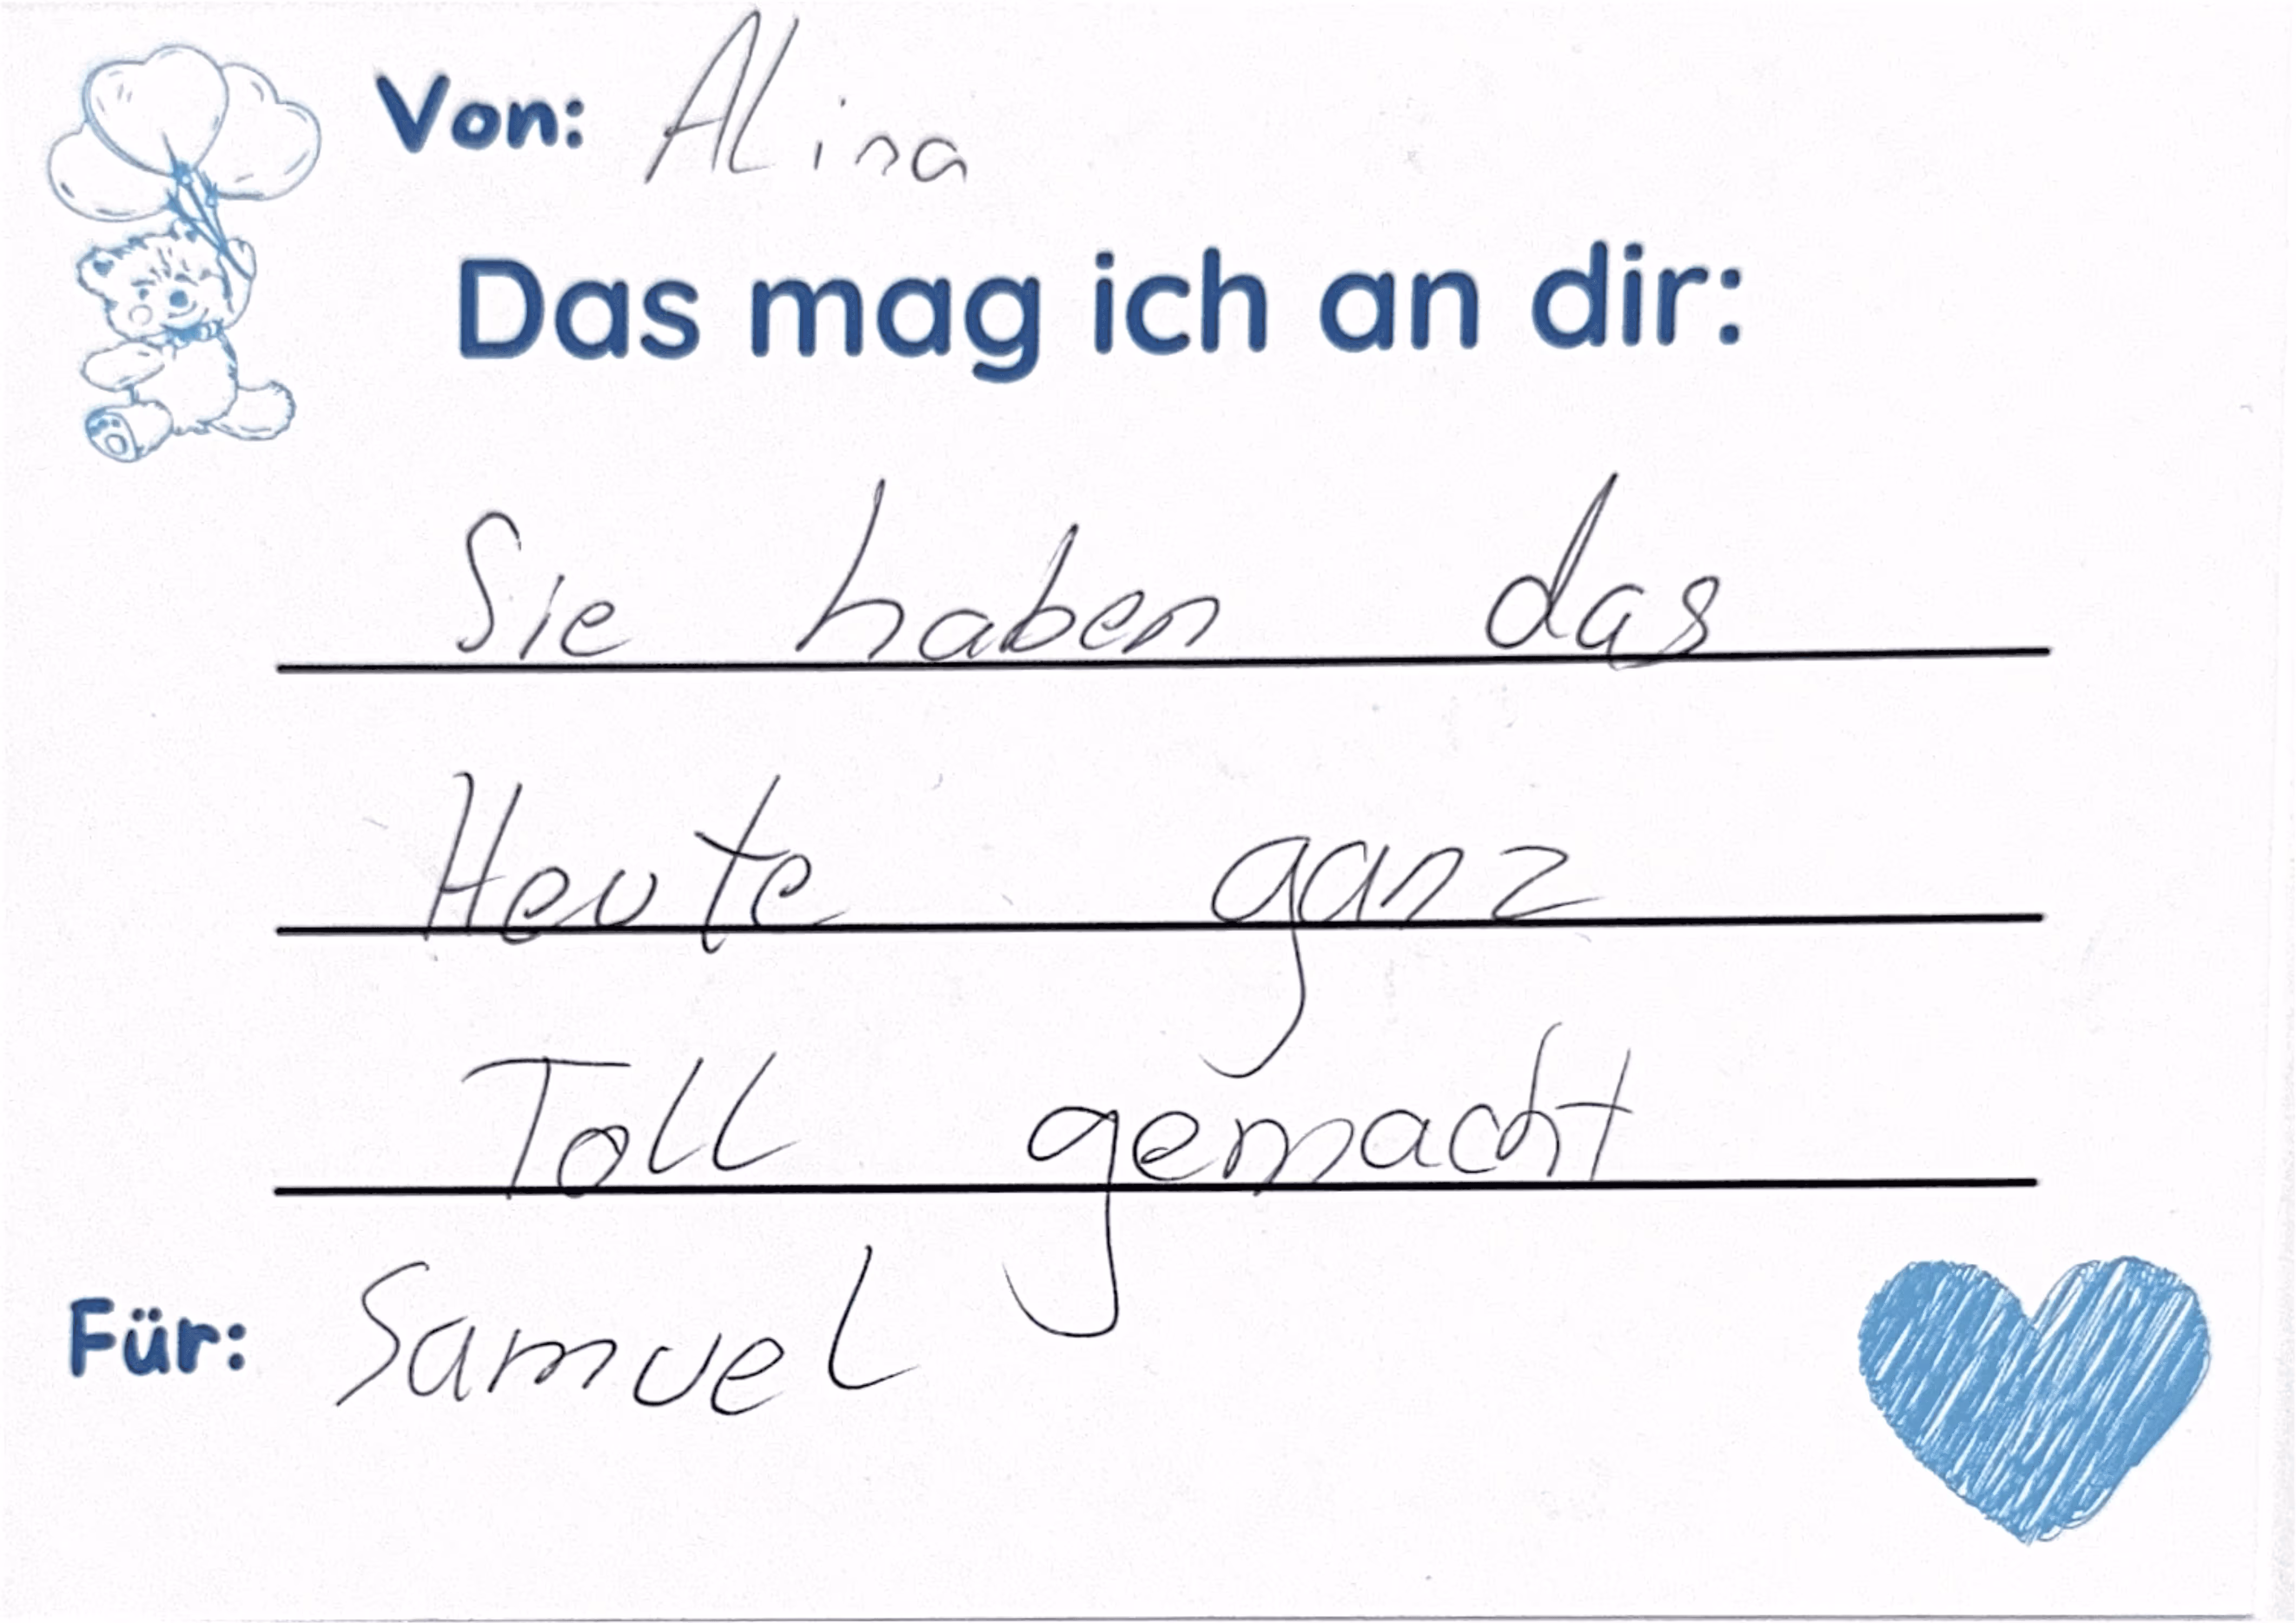 Von: Alina
Das mag ich an dir:
Sie haben das
Heute ganz
Toll gemacht
Für: Samuel